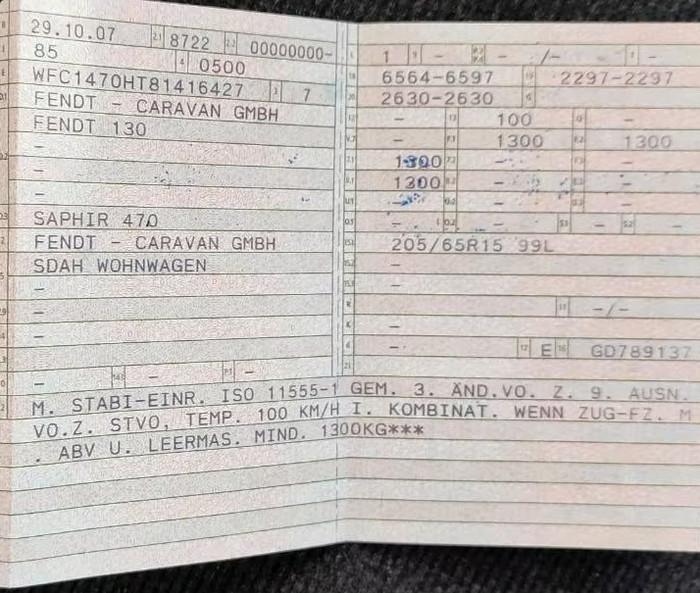 29.10.07 8722 00000000-
85 0500
WFC1470HT81416427 7
FENDT - CARAVAN GMBH
FENDT 130
-
-
-
SAPHIR 470
FENDT - CARAVAN GMBH
SDAH WOHNWAGEN
-
-
-
-
- - -
1 - -/- -
6564-6597 2297-2297
2630-2630
- 100 -
- 1300 1300
1300 - -
1300 - -
- -
- - - -
205/65R15 99L
-
-
- -/-
-
- E GD789137
M. STABI-EINR. ISO 11555-1 GEM. 3. ÄND.VO. Z. 9. AUSN.
VO.Z. STVO, TEMP. 100 KM/H I. KOMBINAT. WENN ZUG-FZ. M
. ABV U. LEERMAS. MIND. 1300KG***